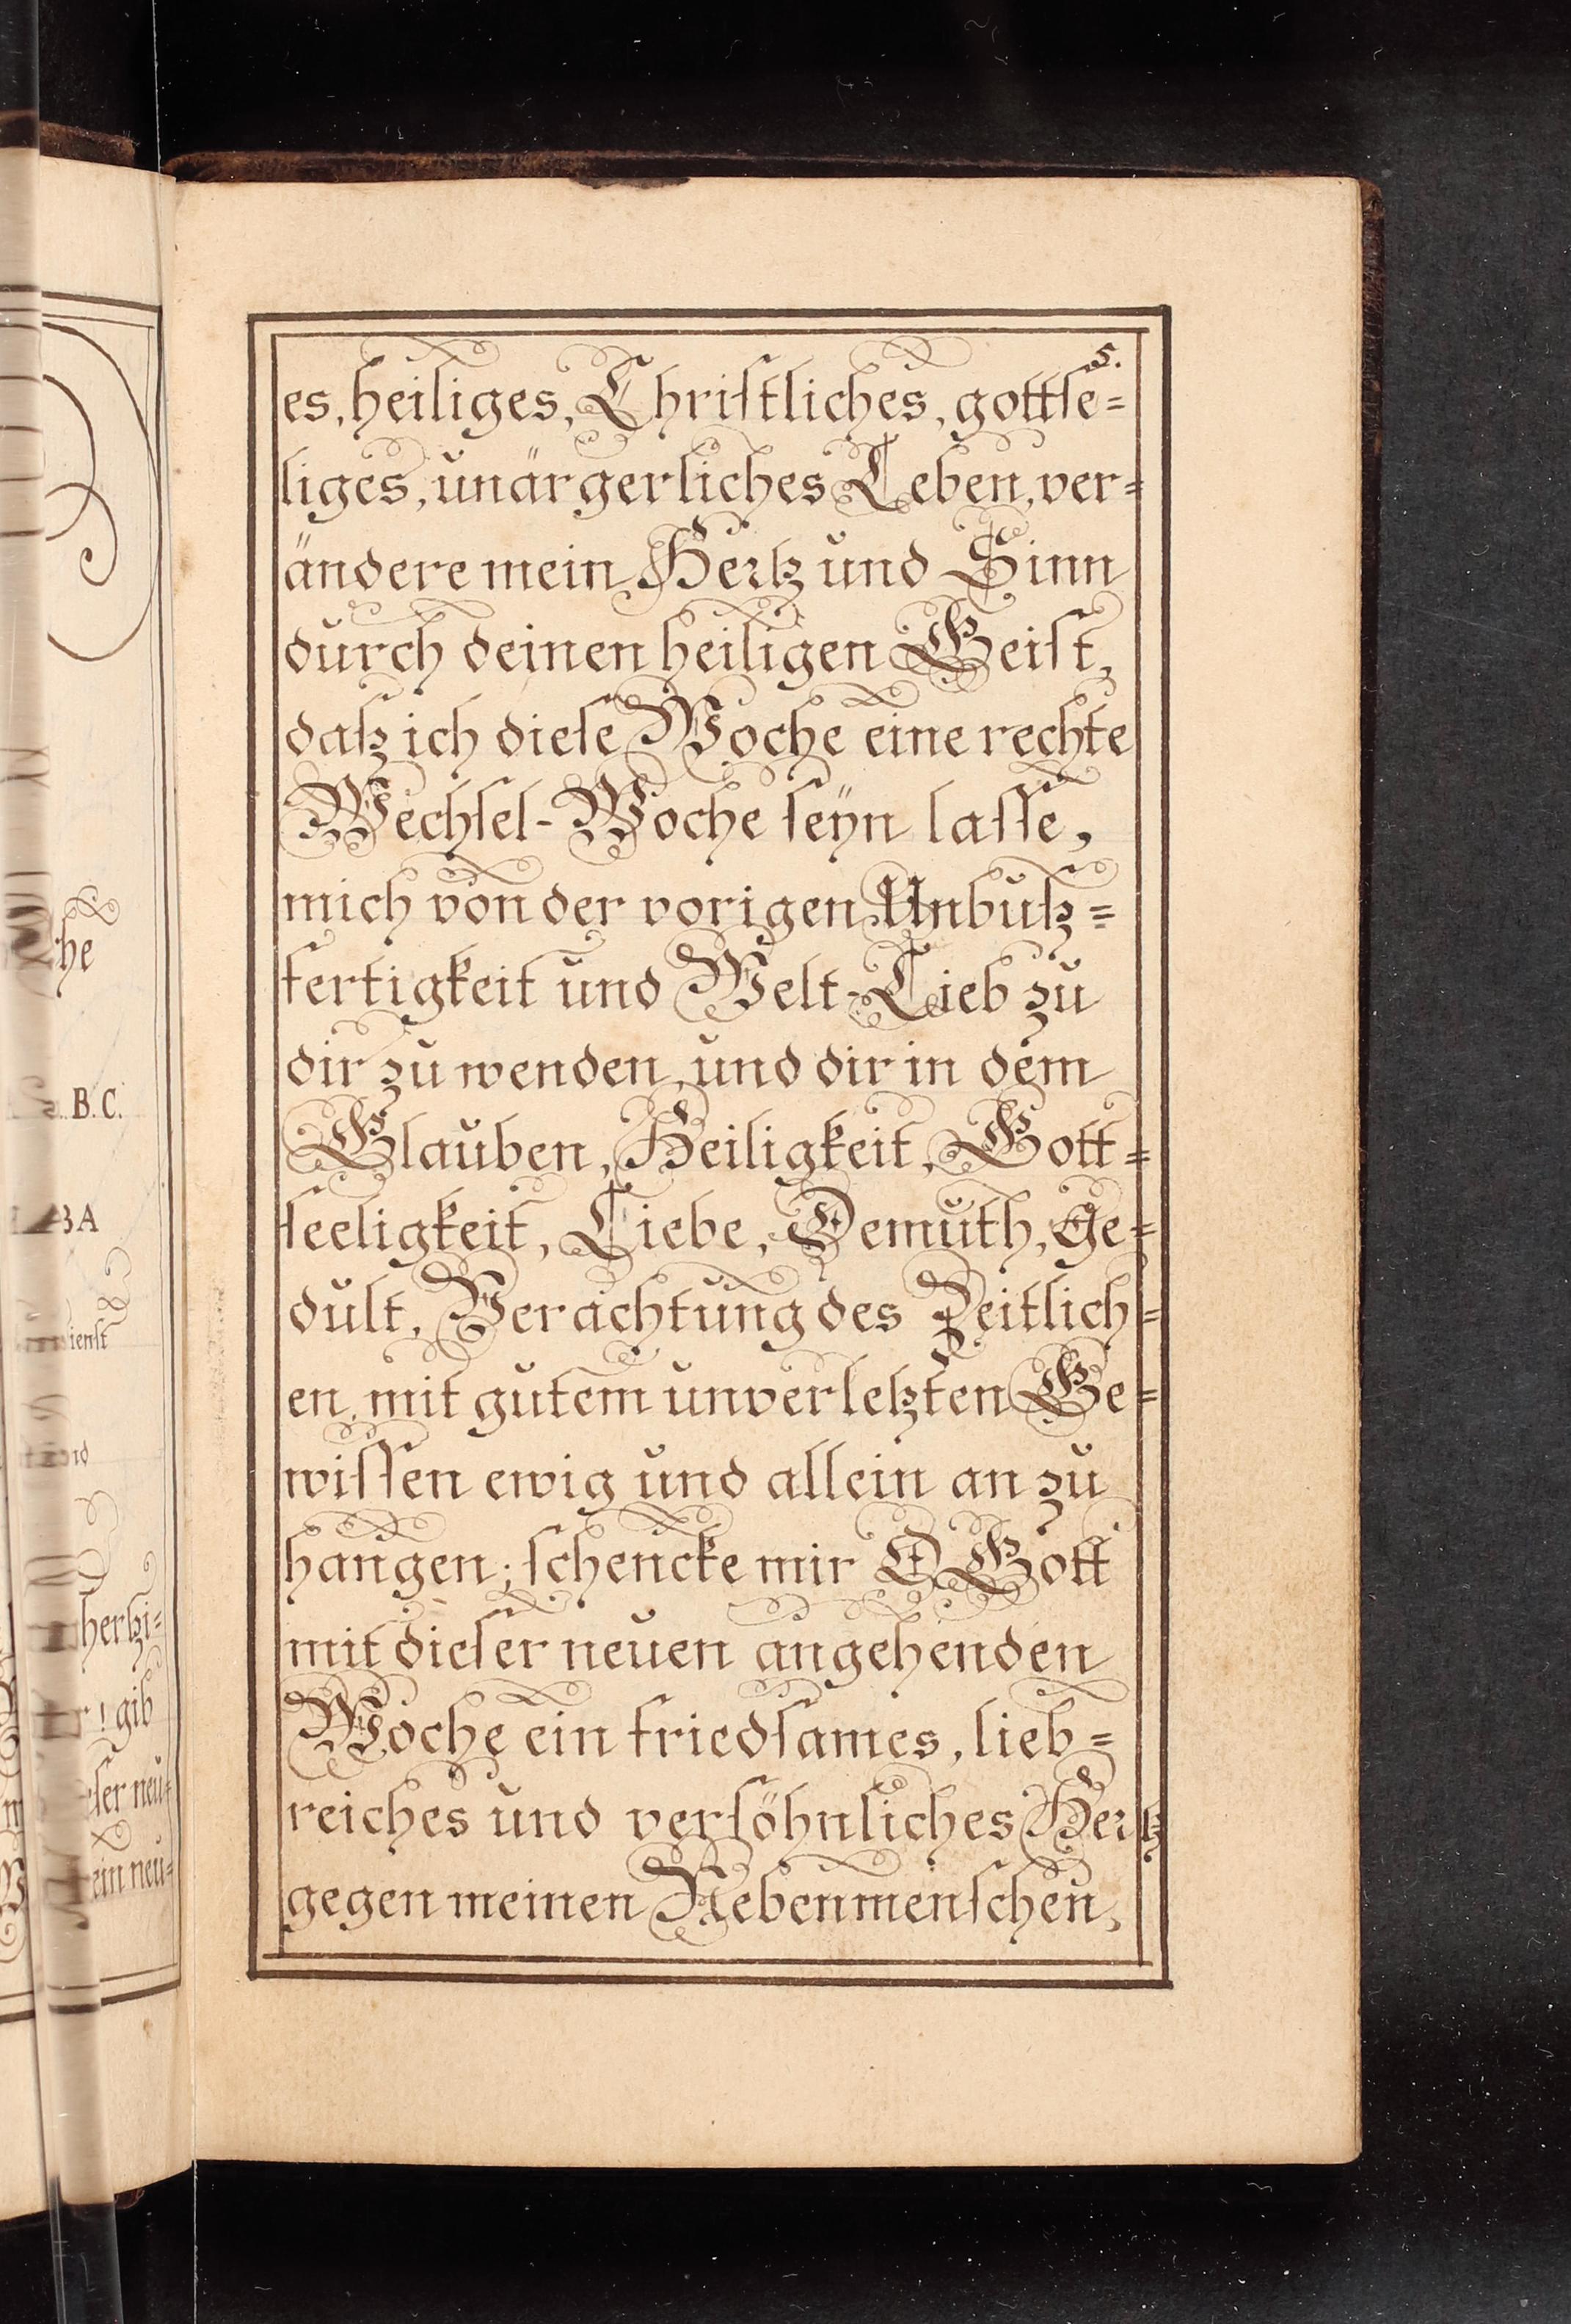 5.
es, heiliges, Chriſtliches, gottſe=
liges, unärgerliches Leben, ver=
ändere mein Hertz und Sinn
durch deinen heiligen Geiſt,
daß ich dieſe Woche eine rechte
Wechſel-Woche ſeÿn laſſe,
mich von der vorigen Unbuß=
fertigkeit und Welt-Lieb zu
dir zu wenden, und dir in dem
Glauben, Heiligkeit, Gott=
ſeeligkeit, Liebe, Demuth, Ge=
dult, Verachtung des Zeitlich=
en, mit gutem unverletzten Ge=
wiſſen ewig und allein an zu
hangen; ſchencke mir O Gott
mit dieſer neuen angehenden
Woche ein friedſames, lieb=
reiches und verſöhnliches Hertz
gegen meinen Nebenmenſchen,
he
B. C.
BA
ienſt
hertzi=
! gib
ſer neu=
ein neu=